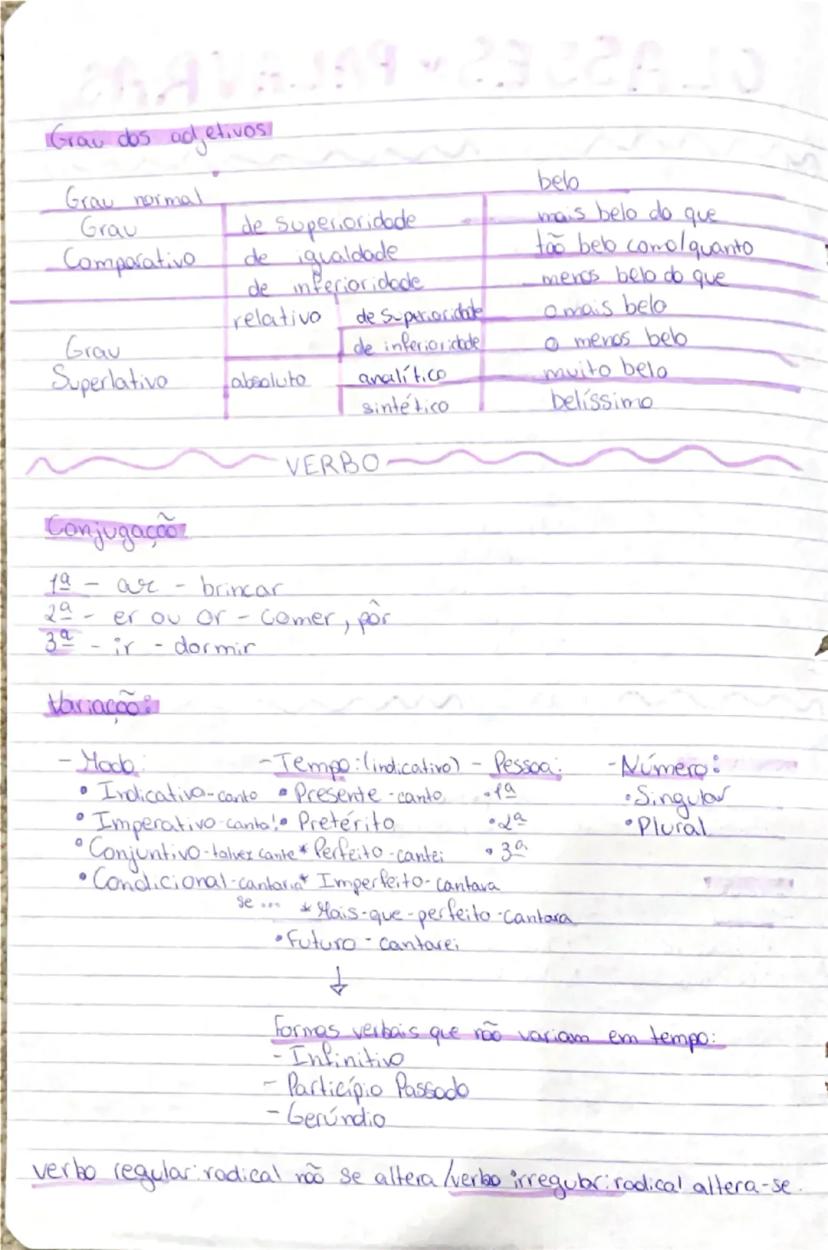 CLASSES PALAVRAS
Grau dos adjetivos
Grau normal belo
Grau de superioridade mais belo do que
Comparativo de igualdade tão belo como/quanto
de inferioridade menos belo do que
relativo de superioridade o mais belo
Grau de inferioridade o menos belo
Superlativo absoluto analítico muito belo
sintético belíssimo
VERBO
Conjugação
1ª - ar - brincar
2ª - er ou or - comer, pôr
3ª - ir - dormir
Variação:
- Modo: - Tempo: (indicativo) - Pessoa: - Número:
• Indicativo-canto • Presente-canto • 1ª • Singular
• Imperativo-canta! • Pretérito • 2ª • Plural
• Conjuntivo-talvez cante * Perfeito-cantei • 3ª
• Condicional-cantaria * Imperfeito-cantava
se ... * Mais-que-perfeito-cantara
• Futuro - cantarei
↓
Formas verbais que não variam em tempo:
- Infinitivo
- Particípio Passado
- Gerúndio
verbo regular: radical não se altera / verbo irregular: radical altera-se.